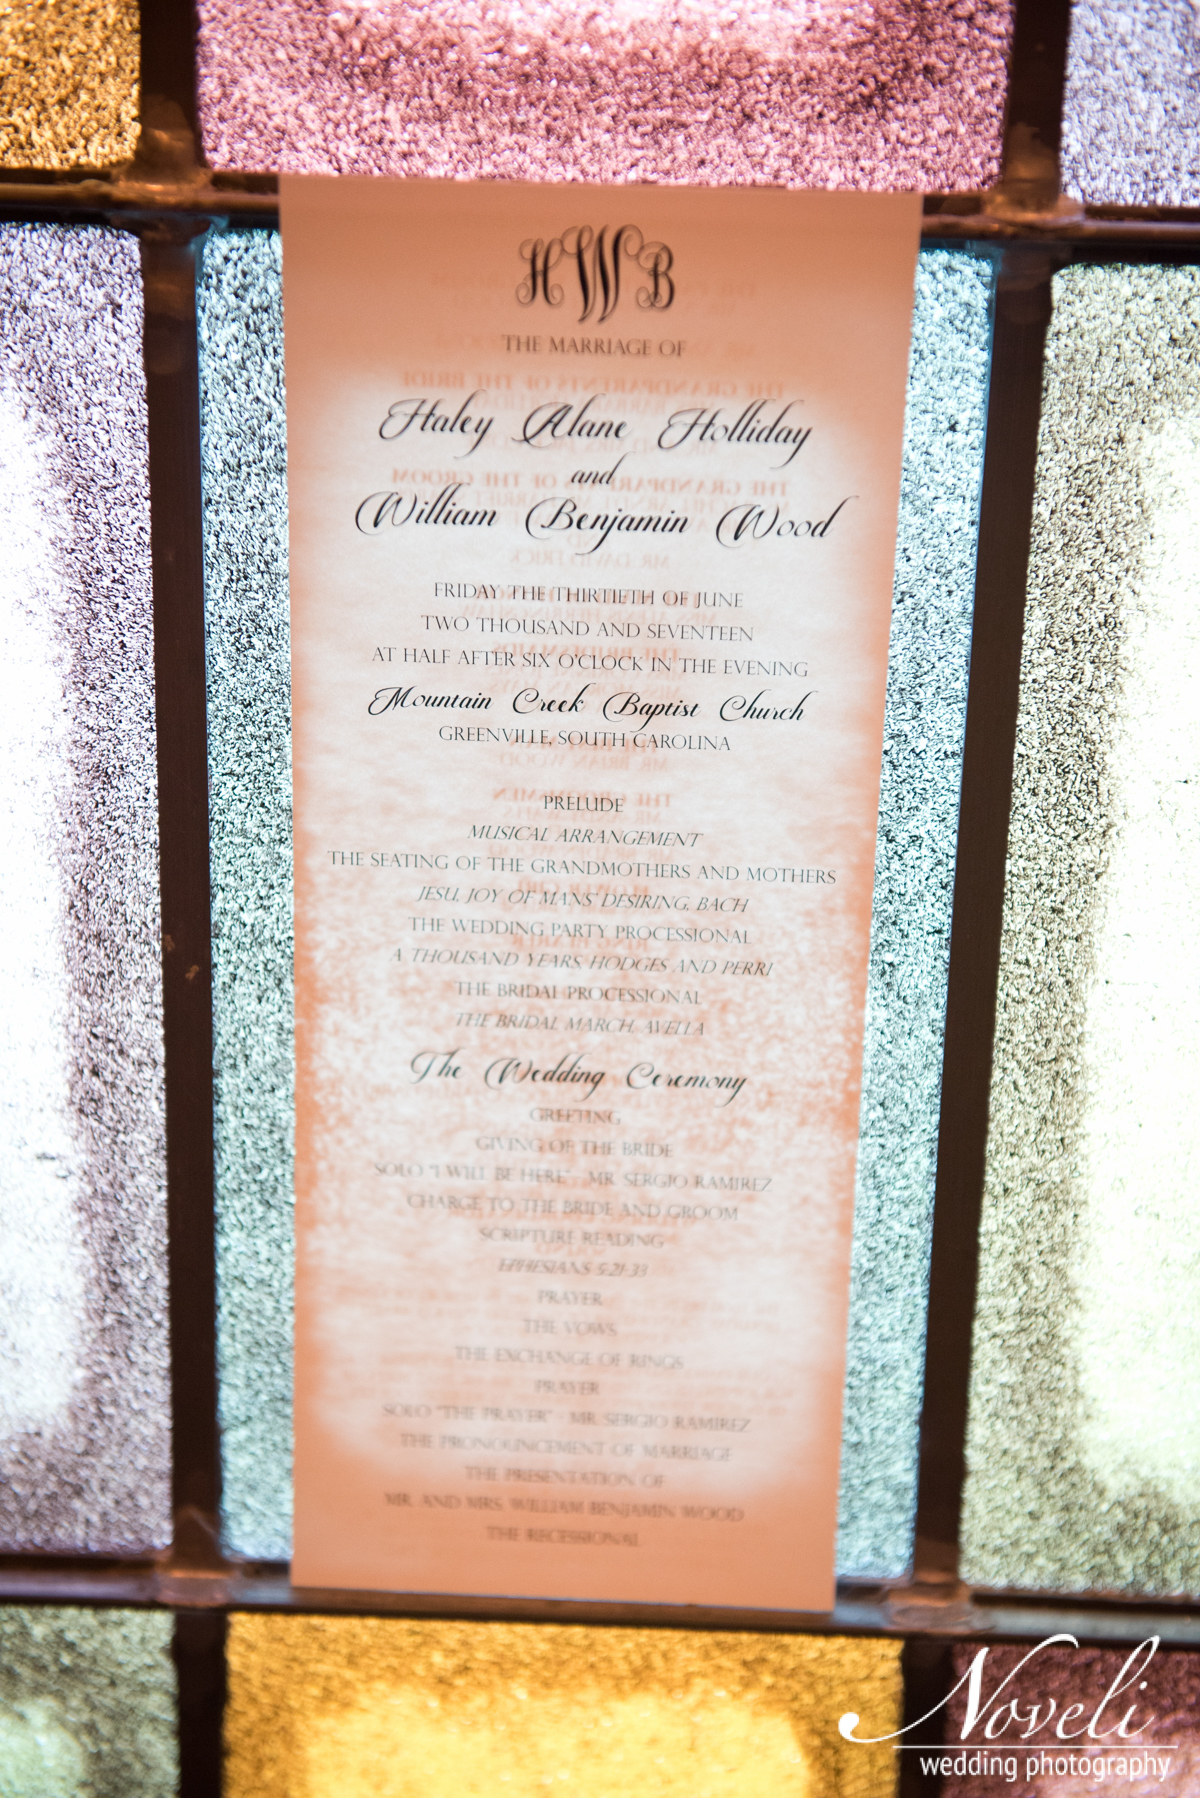 HWB
THE MARRIAGE OF
Haley Alane Holliday
and
William Benjamin Wood
FRIDAY THE THIRTIETH OF JUNE
TWO THOUSAND AND SEVENTEEN
AT HALF AFTER SIX O'CLOCK IN THE EVENING
Mountain Creek Baptist Church
GREENVILLE, SOUTH CAROLINA
PRELUDE
MUSICAL ARRANGEMENT
THE SEATING OF THE GRANDMOTHERS AND MOTHERS
JESU, JOY OF MANS' DESIRING, BACH
THE WEDDING PARTY PROCESSIONAL
A THOUSAND YEARS, HODGES AND PERRI
THE BRIDAL PROCESSIONAL
THE BRIDAL MARCH, AVELLA
The Wedding Ceremony
GREETING
GIVING OF THE BRIDE
SOLO "I WILL BE HERE" - MR. SERGIO RAMIREZ
CHARGE TO THE BRIDE AND GROOM
SCRIPTURE READING
EPHESIANS 5:21-33
PRAYER
THE VOWS
THE EXCHANGE OF RINGS
PRAYER
SOLO "THE PRAYER" - MR. SERGIO RAMIREZ
THE PRONOUNCEMENT OF MARRIAGE
THE PRESENTATION OF
MR. AND MRS. WILLIAM BENJAMIN WOOD
THE RECESSIONAL
Noveli
wedding photography